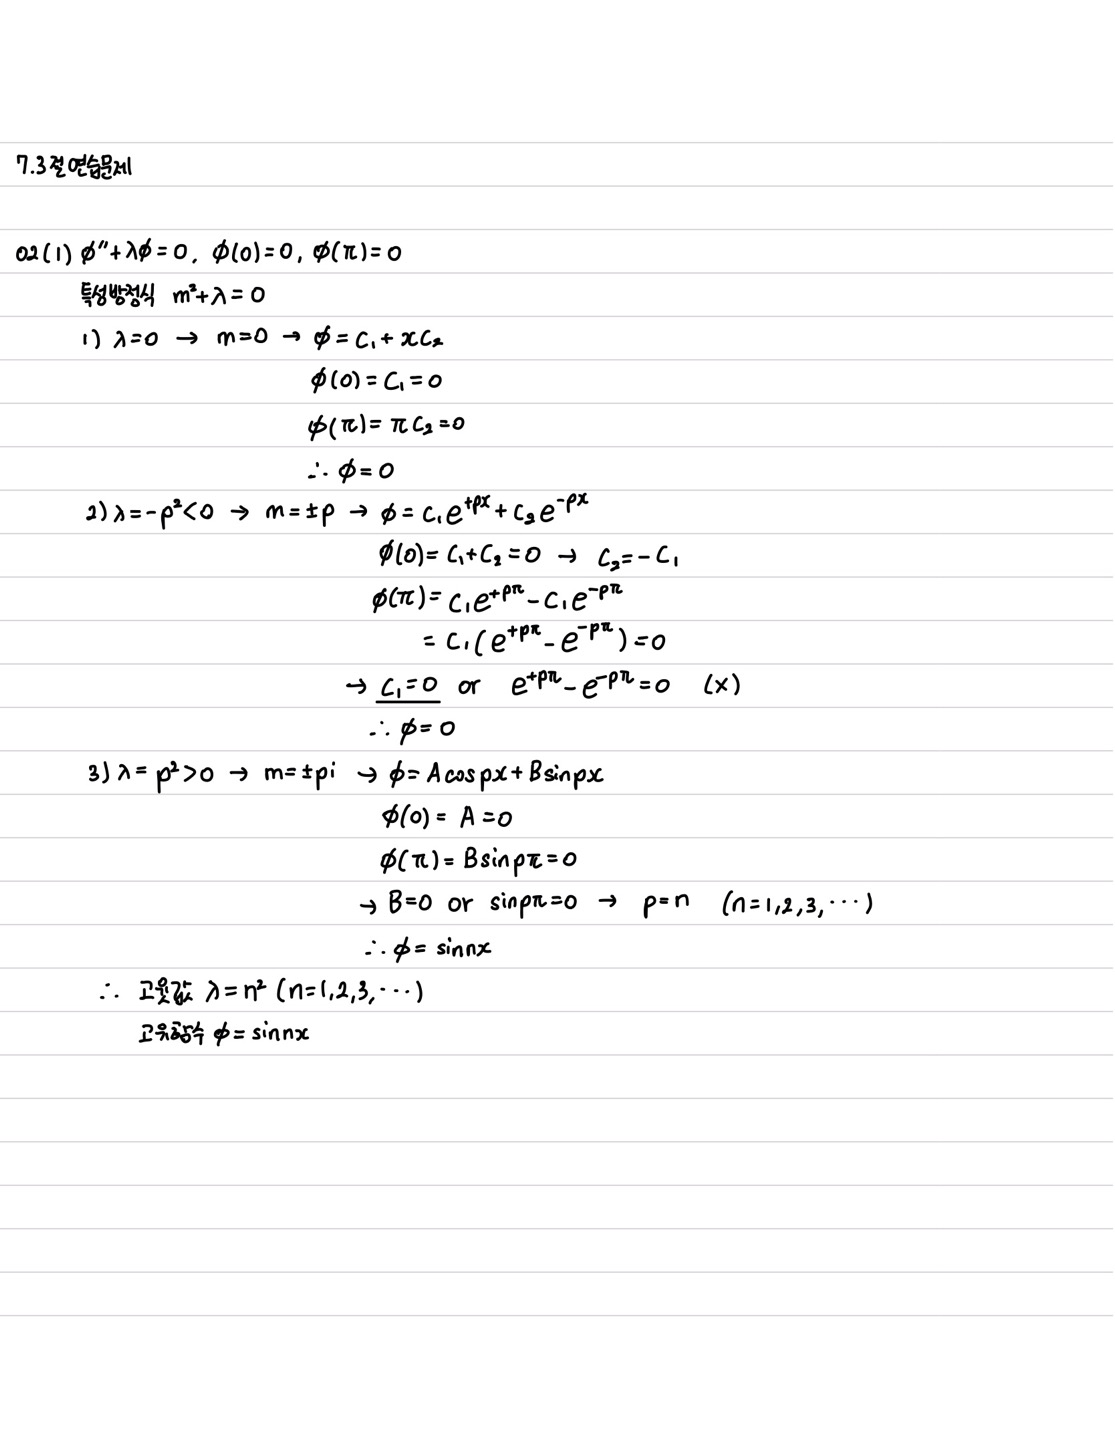 7.3절 연습문제
02(1) φ''+λφ=0, φ(0)=0, φ(π)=0
특성방정식 m²+λ=0
1) λ=0 → m=0 → φ=C₁+xC₂
φ(0)=C₁=0
φ(π)=πC₂=0
∴ φ=0
2) λ=-p²<0 → m=±p → φ=C₁e^{+px}+C₂e^{-px}
φ(0)=C₁+C₂=0 → C₂=-C₁
φ(π)=C₁e^{+pπ}-C₁e^{-pπ}
=C₁(e^{+pπ}-e^{-pπ})=0
→ C₁=0 or e^{+pπ}-e^{-pπ}=0 (x)
∴ φ=0
3) λ=p²>0 → m=±pi → φ=Acospx+Bsinpx
φ(0)=A=0
φ(π)=Bsinpπ=0
→ B=0 or sinpπ=0 → p=n (n=1,2,3,···)
∴ φ=sinnx
∴ 고윳값 λ=n² (n=1,2,3,···)
고유함수 φ=sinnx